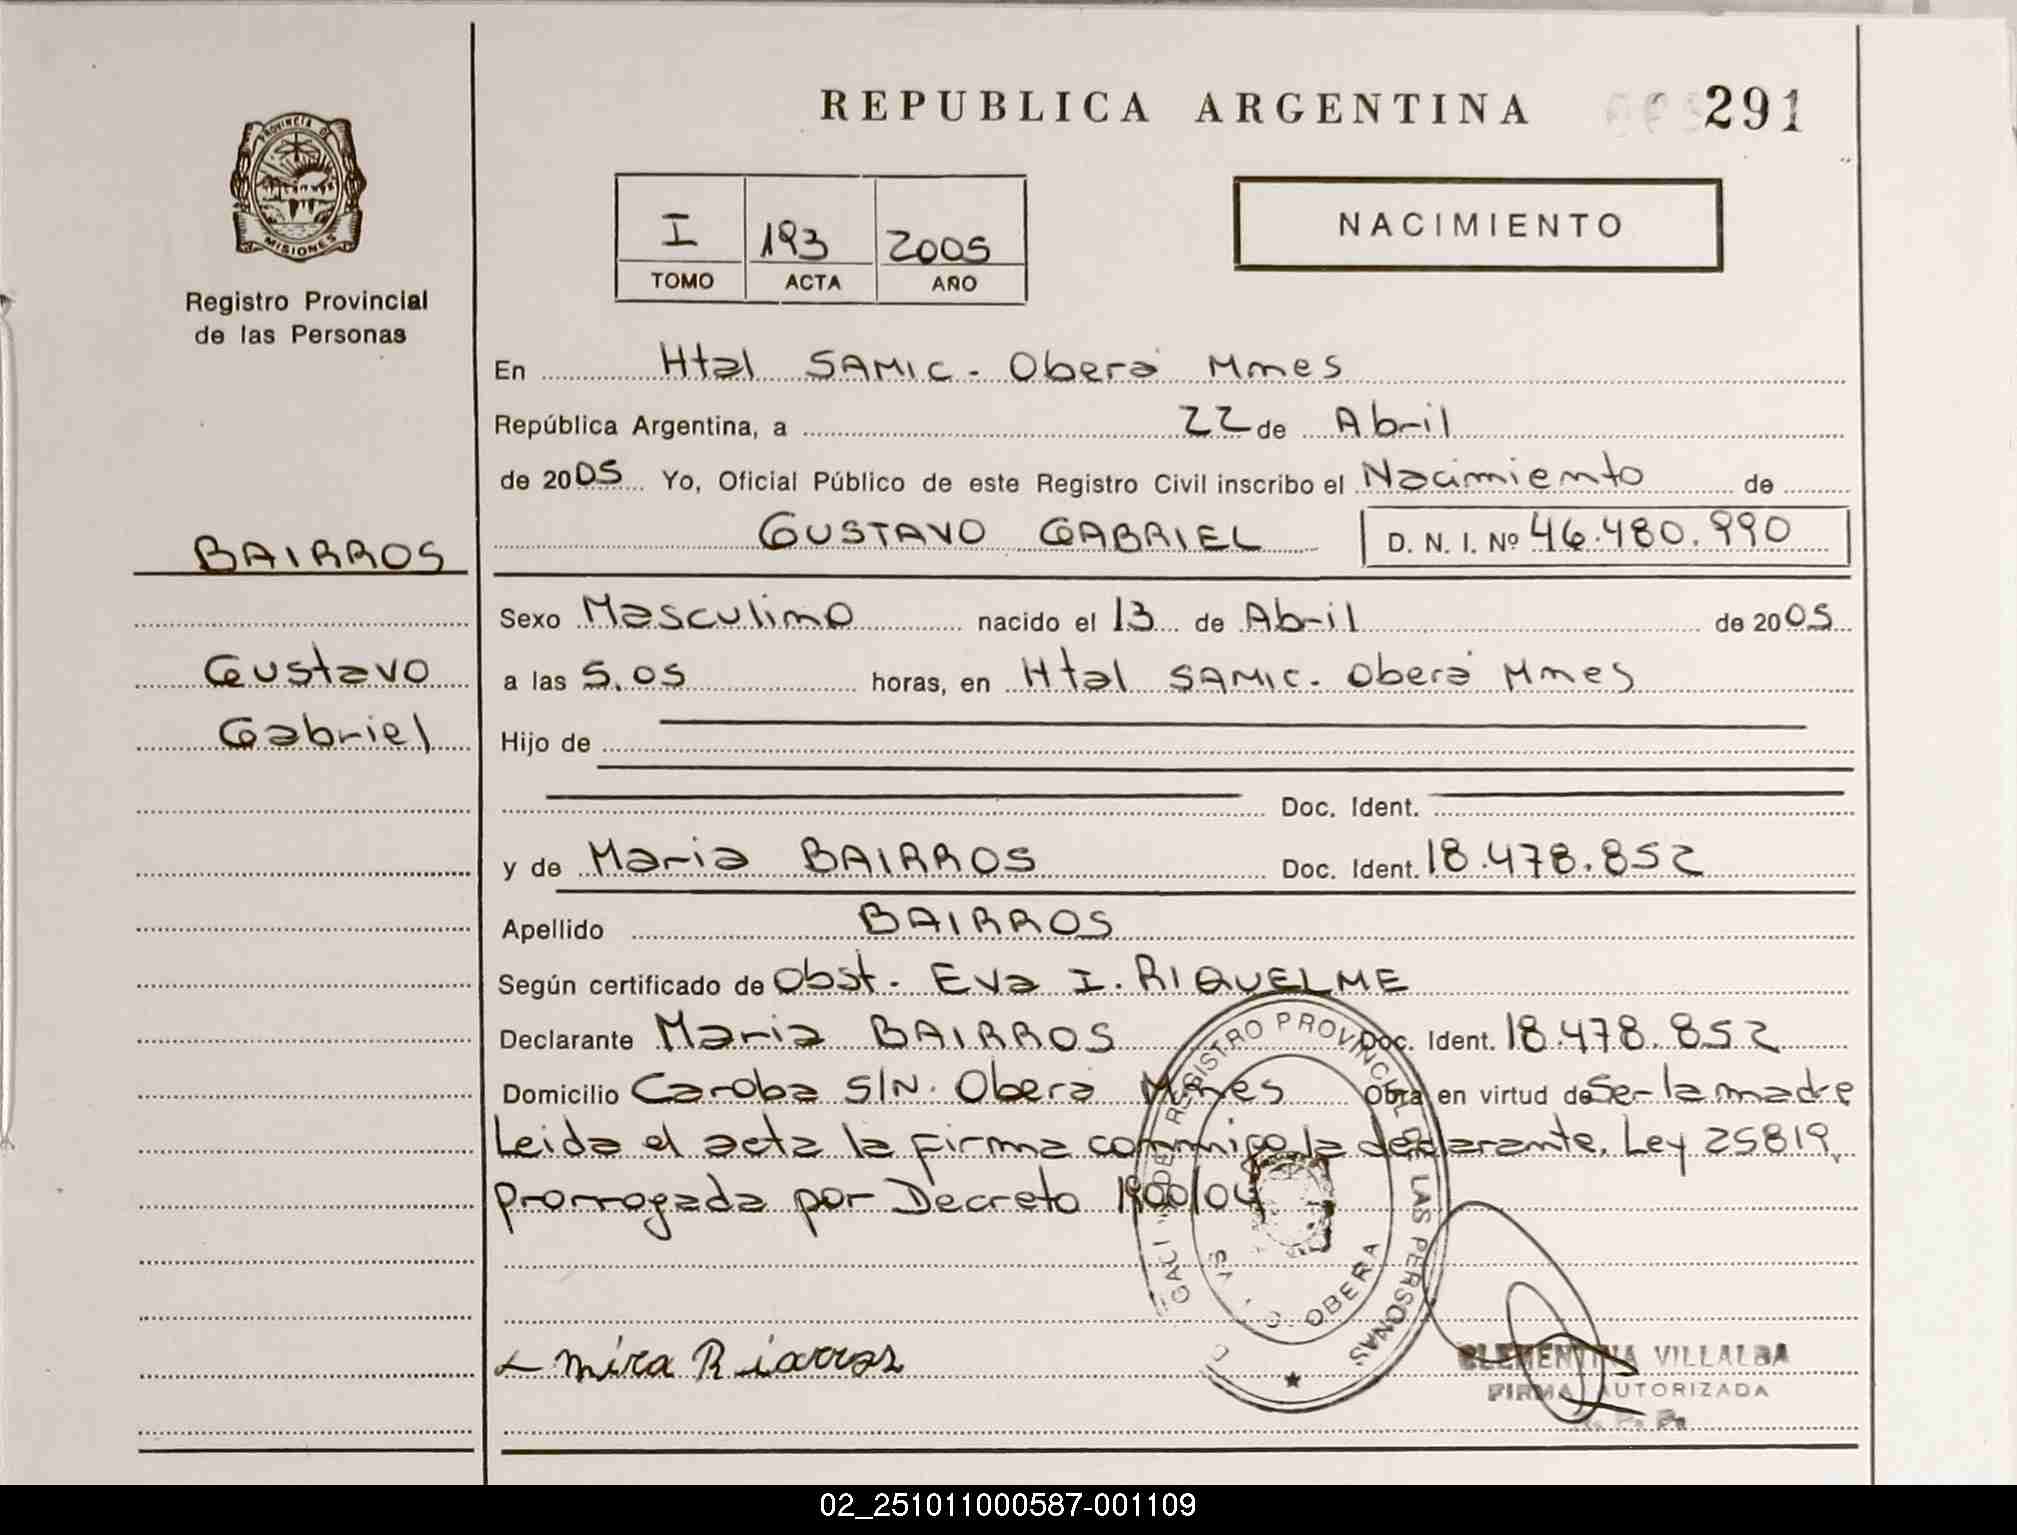 REPUBLICA ARGENTINA
291
PROVINCIA DE
MISIONES
Registro Provincial
de las Personas
I 193 2005
TOMO ACTA AÑO
NACIMIENTO
En Htal SAMIC - Oberá Mnes
República Argentina, a 22 de Abril
de 2005 Yo, Oficial Público de este Registro Civil inscribo el Nacimiento de
GUSTAVO GABRIEL D. N. I. Nº 46.480.990
BAIRROS
Gustavo
Gabriel
Sexo Masculino nacido el 13 de Abril de 2005
a las 5.05 horas, en Htal SAMIC - Oberá Mnes
Hijo de
Doc. Ident.
y de Maria BAIRROS Doc. Ident. 18.478.852
Apellido BAIRROS
Según certificado de Obst. Eva I. RIQUELME
Declarante Maria BAIRROS Doc. Ident. 18.478.852
Domicilio Caroba S/N. Oberá Mnes Obra en virtud de Ser la madre
Leida el acta la firma conmigo la declarante. Ley 25819,
prorrogada por Decreto 1900/04
REGISTRO PROVINCIAL DE LAS PERSONAS
OBERA
CLEMENTINA VILLALBA
FIRMA AUTORIZADA
02_251011000587-001109